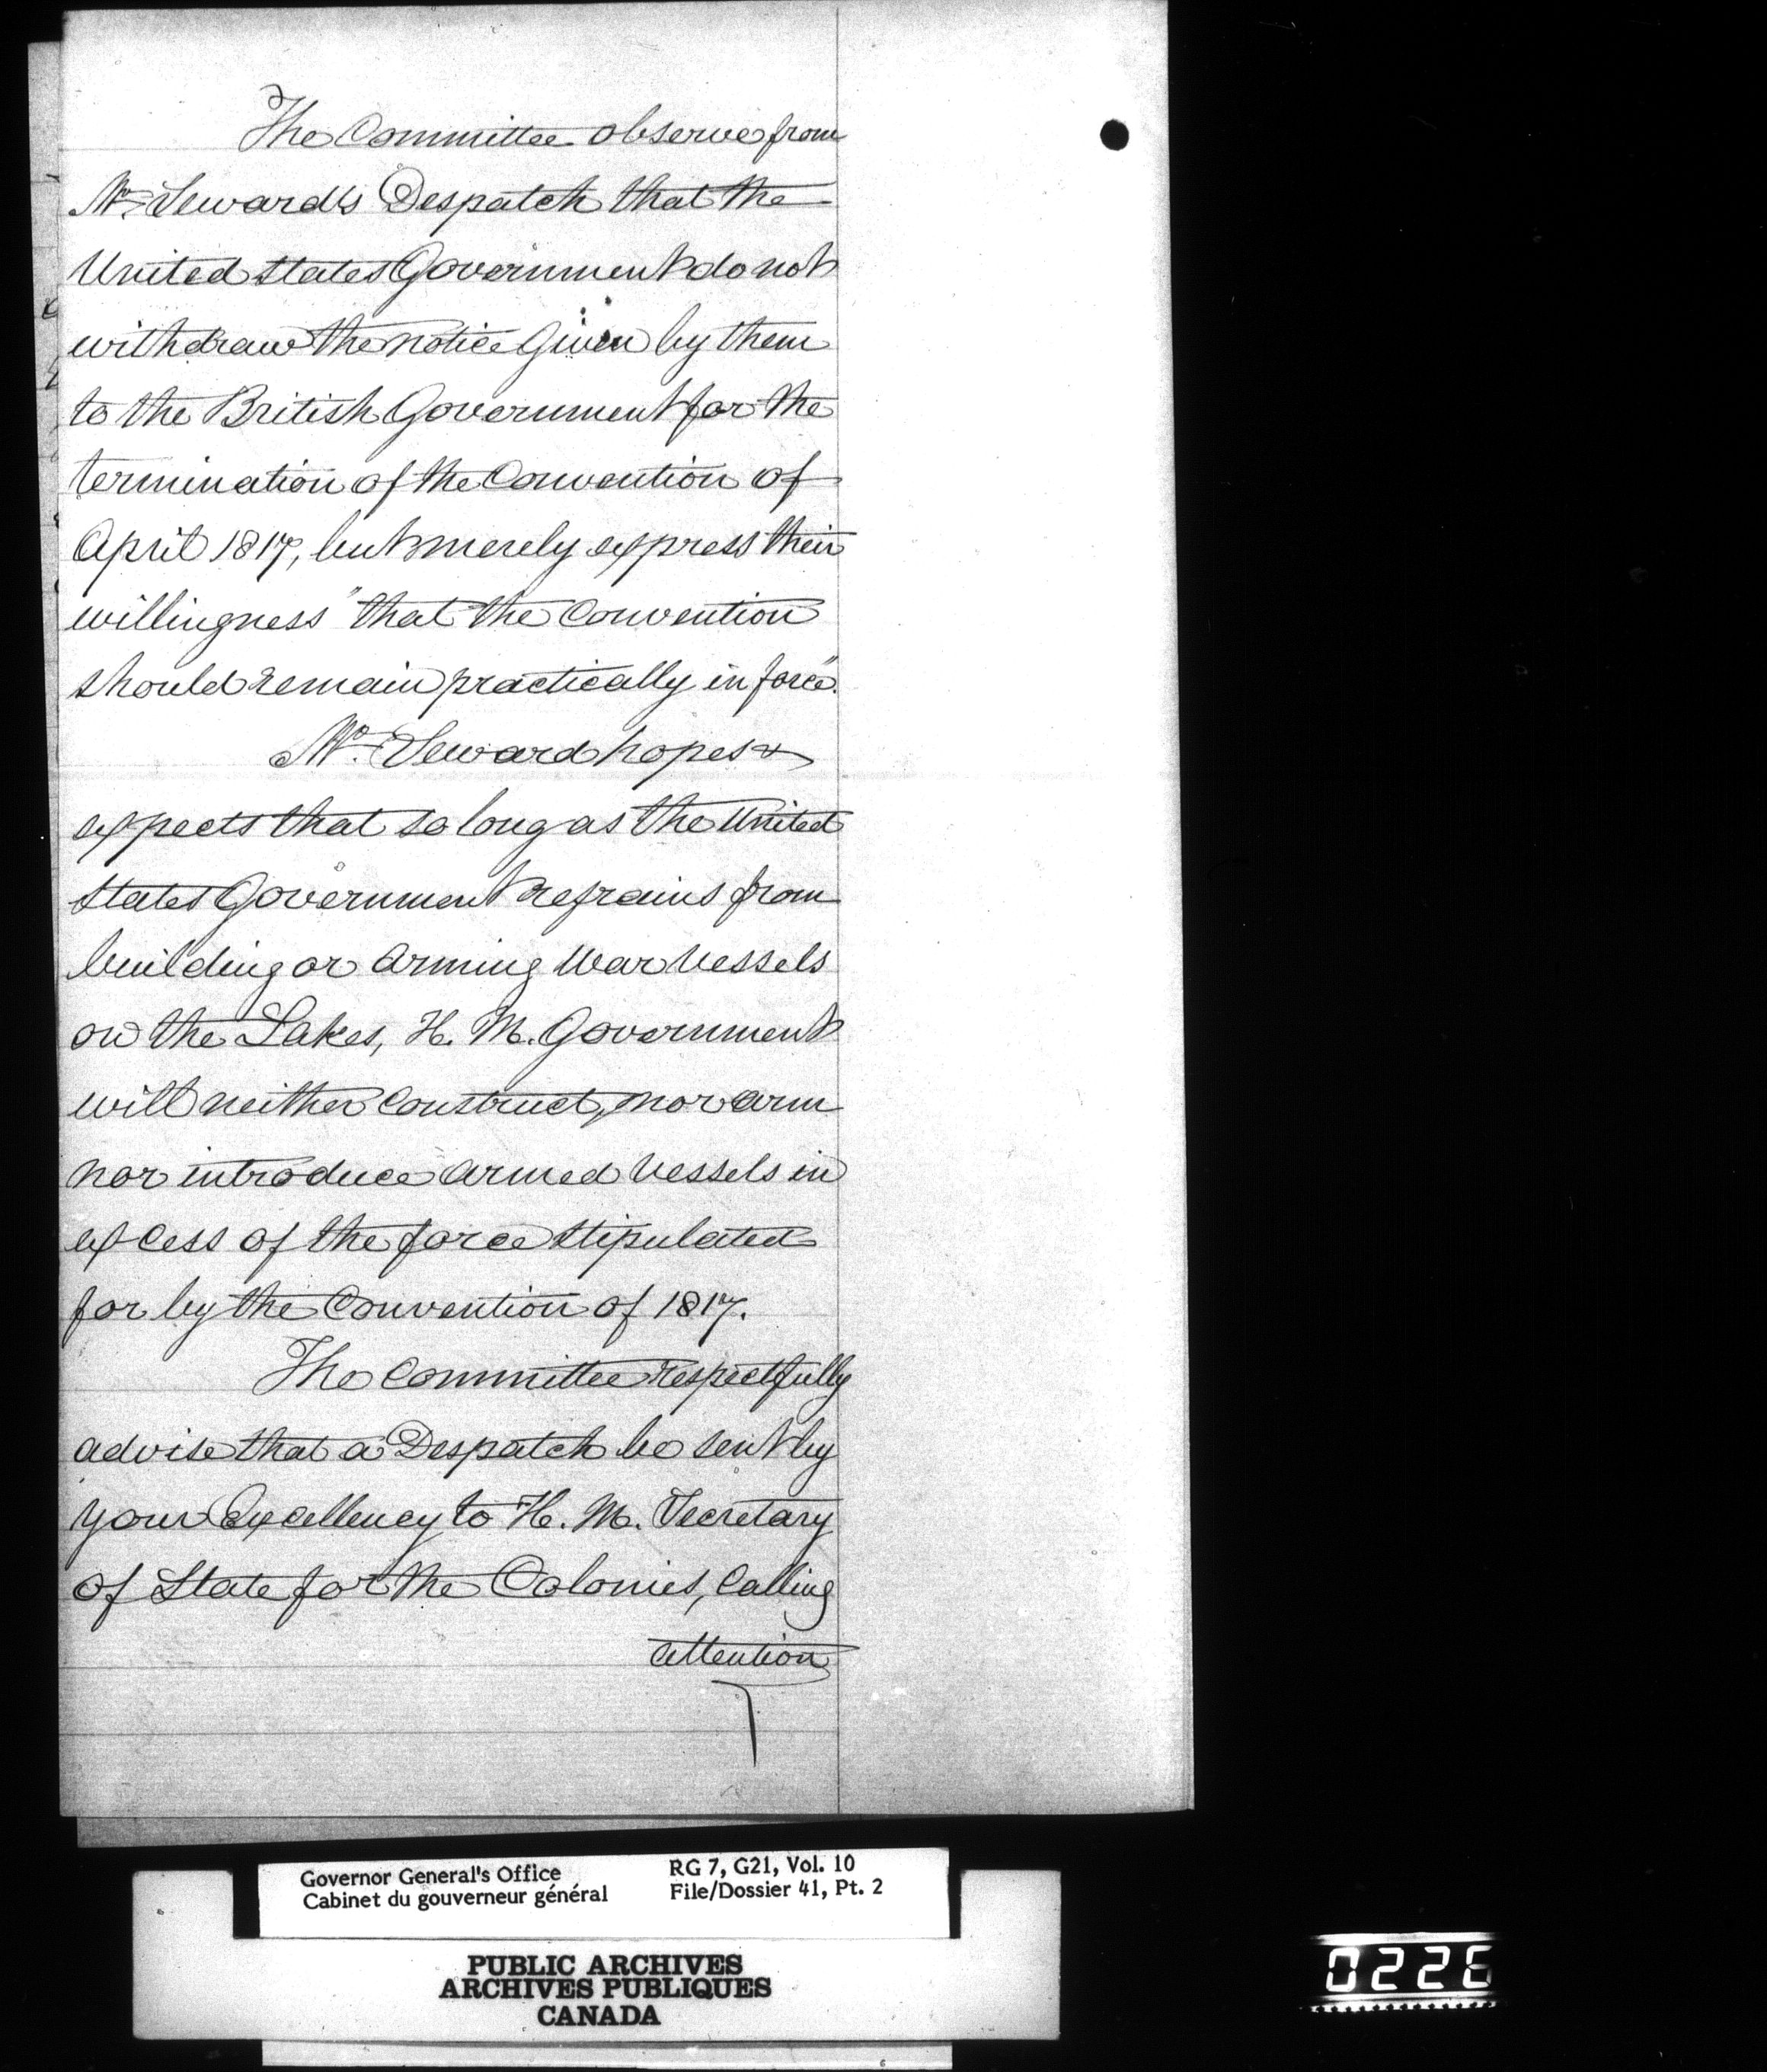 The Committee observe from
Mr. Seward's Despatch that the
United States Government do not
withdraw the notice given by them
to the British Government for the
termination of the Convention of
April 1817, but merely express their
willingness "that the Convention
should remain practically in force".
Mr. Seward hopes &
expects that so long as the United
States Government refrains from
building or arming War Vessels
on the Lakes, H. M. Government
will neither construct, nor arm
nor introduce armed Vessels in
excess of the force stipulated
for by the Convention of 1817.
The Committee respectfully
advise that a Despatch be sent by
Your Excellency to H. M. Secretary
of State for the Colonies, calling
attention
Governor General's Office
Cabinet du gouverneur général
RG 7, G21, Vol. 10
File/Dossier 41, Pt. 2
PUBLIC ARCHIVES
ARCHIVES PUBLIQUES
CANADA